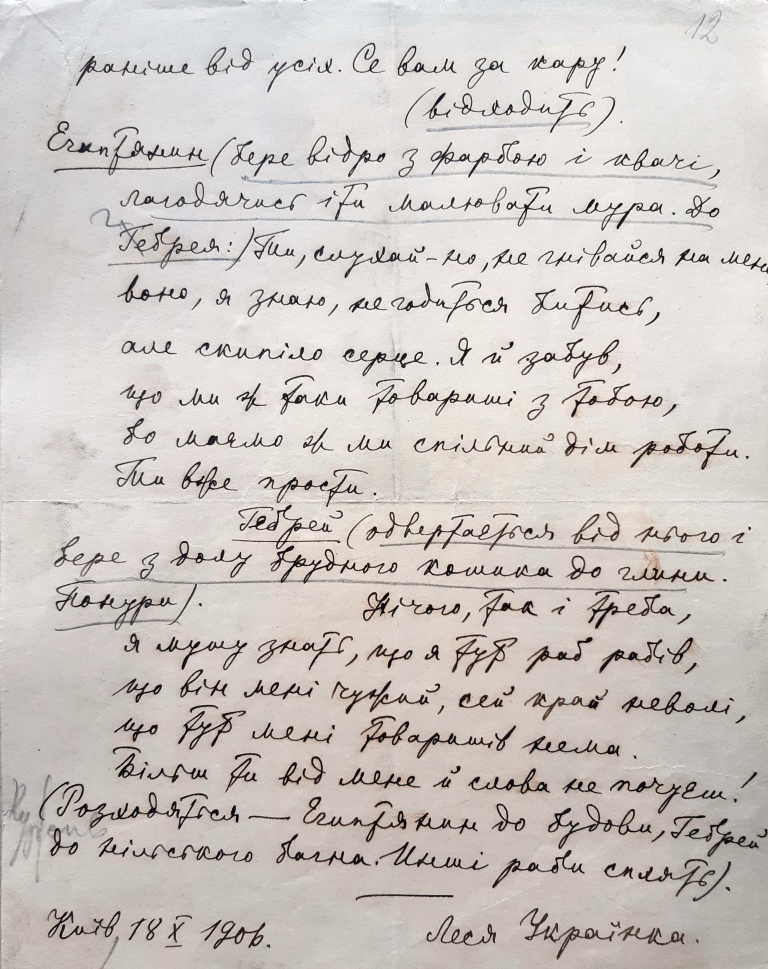 12
раніше від усіх. Се вам за кару!
(відходить).
Египтянин (бере відро з фарбою і квачі,
лагодячись іти малювати мура. До
Гебрея:) Ти, слухай-но, не гнівайся на мене
воно, я знаю, не годиться битись,
але скипіло серце. Я й забув,
що ми ж таки товариші з тобою,
бо маємо ж ми спільний дім роботи.
Ти вже прости.
Гебрей (одвертається від нього і
бере з долу брудного кошика до глини.
Понуро).
Нічого, так і треба,
я мушу знать, що я тут раб рабів,
що він мені чужий, сей край неволі,
що тут мені товаришів нема.
Більш ти від мене й слова не почуєш!
(Розходяться — Египтянин до будови, Гебрей
до нільського багна. Инші раби сплять).
Київ, 18 X 1906.
Леся Українка.